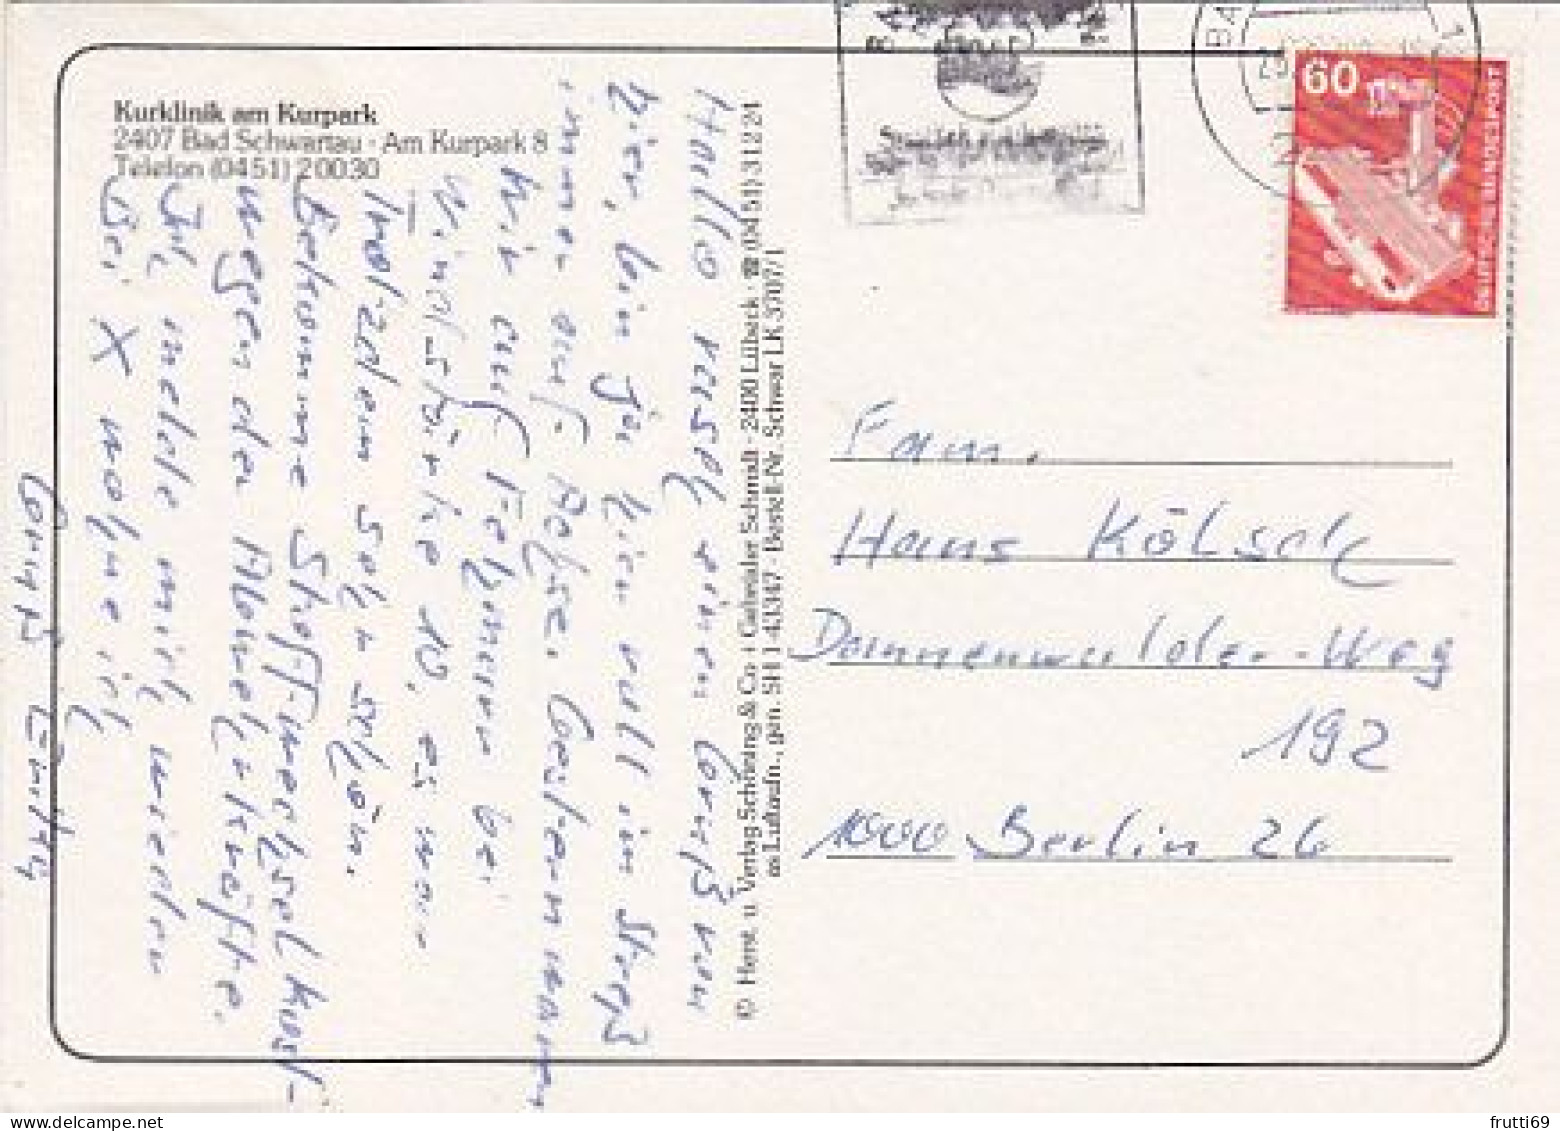 Kurklinik am Kurpark
2407 Bad Schwartau · Am Kurpark 8
Telefon (0451) 20030
Hallo rasch einen Gruß von
hier, bin ja hier voll im Streß
immer auf Achse. Gestern waren
wir auf Fehmarn bei
Windstärke 10, es war
trotzdem sehr schön.
Bekomme Stoffwechselkost
wegen der Abwehrkräfte.
Ich melde mich wieder
Bei X wohne ich
Gruß
© Herst. u. Verlag Schöning & Co + Gebrüder Schmidt · 2400 Lübeck · ☎ (0451) 31224
ss Luftaufn., gen. SH 1-43347 · Bestell-Nr. Schwar LK 3707/1
60
DEUTSCHE BUNDESPOST
Fam.
Hans Kölsch
Dannenwalder-Weg
192
1000 Berlin 26
frutti69